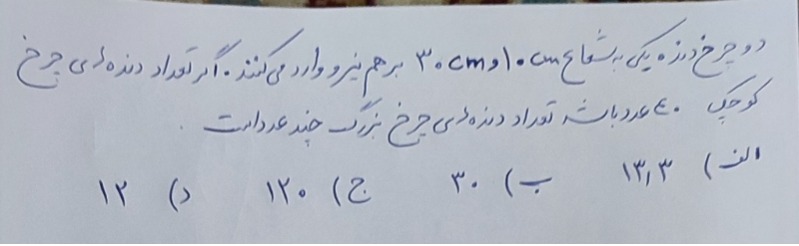 دو چرخ دنده یکی به شعاع ۱۰cm و ۳۰cm بر هم نیرو وارد می‌کنند. اگر تعداد دنده‌های چرخ
کوچک ۴۰ عدد باشد تعداد دنده‌های چرخ بزرگ چند عدد است.
الف) ۱۳٫۳ ب) ۳۰ ج) ۱۲۰ د) ۱۲